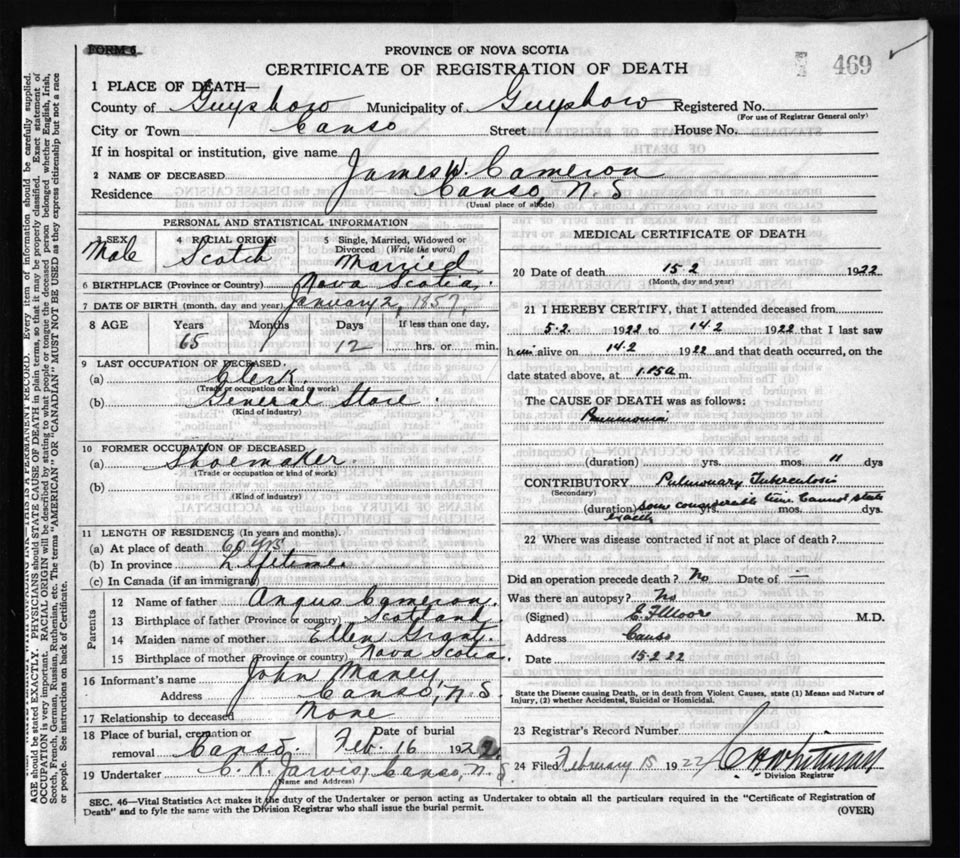 FORM 6
PROVINCE OF NOVA SCOTIA
CERTIFICATE OF REGISTRATION OF DEATH
469
1 PLACE OF DEATH—
County of Guysboro Municipality of Guysboro Registered No.
(For use of Registrar General only)
City or Town Canso Street House No.
If in hospital or institution, give name
2 NAME OF DECEASED James W. Cameron
Residence Canso, N S
(Usual place of abode)
PERSONAL AND STATISTICAL INFORMATION
3 SEX 4 RACIAL ORIGIN 5 Single, Married, Widowed or Divorced (Write the word)
Male Scotch Married
6 BIRTHPLACE (Province or Country) Nova Scotia.
7 DATE OF BIRTH (month, day and year) January 2, 1857,
8 AGE Years Months Days If less than one day,
65 1 12 hrs. or min.
9 LAST OCCUPATION OF DECEASED.
(a) Clerk
(Trade or occupation or kind of work)
(b) General Store.
(Kind of industry)
10 FORMER OCCUPATION OF DECEASED
(a) Shoemaker
(Trade or occupation or kind of work)
(b)
(Kind of industry)
11 LENGTH OF RESIDENCE (In years and months).
(a) At place of death 60 yrs
(b) In province Lifetime
(c) In Canada (if an immigrant)
Parents
12 Name of father Angus Cameron.
13 Birthplace of father (Province or country) Scotland
14 Maiden name of mother Ellen Grant.
15 Birthplace of mother (Province or country) Nova Scotia.
16 Informant's name John Maney
Address Canso, N S.
17 Relationship to deceased None
18 Place of burial, cremation or removal Canso. Date of burial Feb. 16 1922
19 Undertaker C. K. Jarvis, Canso, N. S
(Name and Address)
MEDICAL CERTIFICATE OF DEATH
20 Date of death 15.2 1922
(Month, day and year)
21 I HEREBY CERTIFY, that I attended deceased from
5.2. 1922 to 14.2 1922 that I last saw
him alive on 14.2 1922 and that death occurred, on the
date stated above, at 1.15 a m.
The CAUSE OF DEATH was as follows:
Pneumonia
(duration) yrs. mos. 11 dys
CONTRIBUTORY Pulmonary Tuberculosis
(Secondary)
(duration) some considerable time. Cannot state mos. dys.
exactly
22 Where was disease contracted if not at place of death?
Did an operation precede death? No Date of —
Was there an autopsy? No
(Signed) E F Moore M.D.
Address Canso
Date 15.2.22
State the Disease causing Death, or in death from Violent Causes, state (1) Means and Nature of
Injury, (2) whether Accidental, Suicidal or Homicidal.
23 Registrar's Record Number
24 Filed February 15 1922 C H Whitman
Division Registrar
SEC. 46—Vital Statistics Act makes it the duty of the Undertaker or person acting as Undertaker to obtain all the particulars required in the "Certificate of Registration of
Death" and to fyle the same with the Division Registrar who shall issue the burial permit. (OVER)
THIS IS A PERMANENT RECORD. Every item of information should be carefully supplied.
AGE should be stated EXACTLY. PHYSICIANS should STATE CAUSE OF DEATH in plain terms, so that it may be properly classified. Exact statement of
OCCUPATION is very important. RACIAL ORIGIN will be described by stating to what people or tongue the deceased person belonged whether English, Irish,
Scotch, French, German, Russian, Ruthenian, etc. The terms "AMERICAN" OR "CANADIAN" MUST NOT BE USED as they express citizenship but not a race
or people. See instructions on back of Certificate.